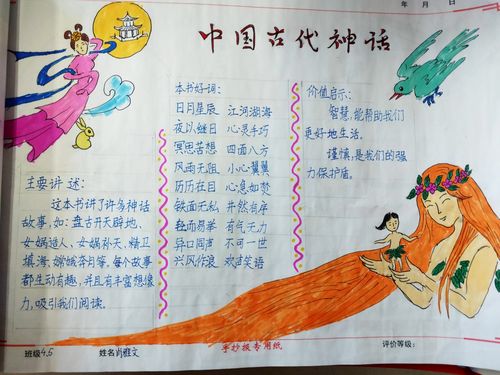 年 月 日
中国古代神话
主要讲述:
这本书讲了许多神话
故事,如:盘古开天辟地、
女娲造人、女娲补天、精卫
填海、嫦娥奔月等。每个故事
都生动有趣,并且有丰富想像
力,吸引我们阅读。
本书好词:
日月星辰 江河湖海
夜以继日 心灵手巧
冥思苦想 四面八方
风雨无阻 小心翼翼
历历在目 心急如焚
铁面无私 井然有序
轻而易举 有气无力
异口同声 不可一世
兴风作浪 欢声笑语
价值启示:
智慧,能帮助我们
更好地生活。
谨慎,是我们的强
力保护盾。
班级4.5 姓名肖雅文 手抄报专用纸 评价等级: